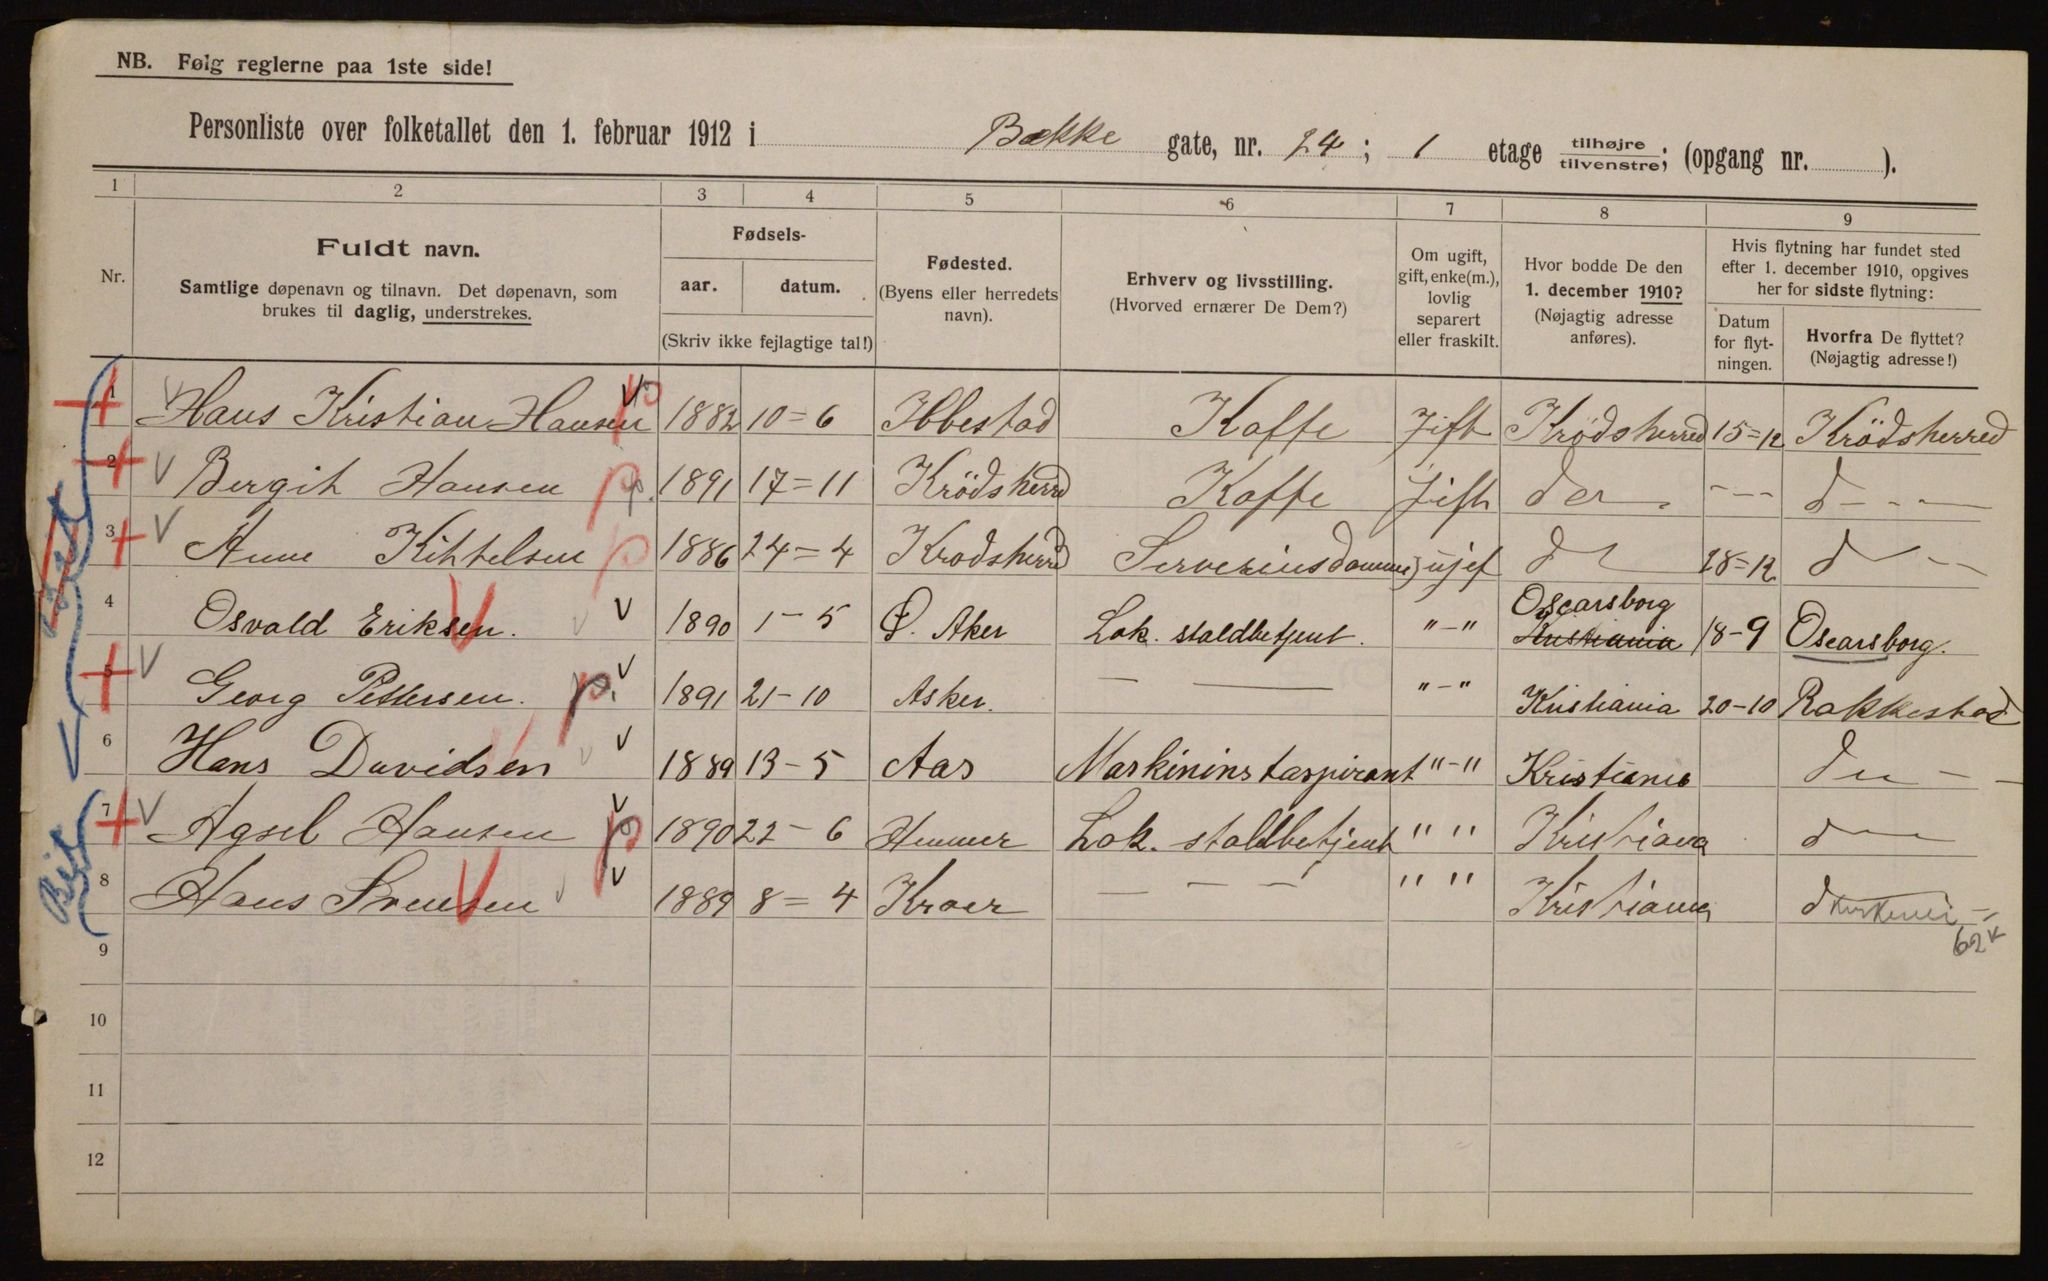 NB. Følg reglerne paa 1ste side!
Personliste over folketallet den 1. februar 1912 i Bekke gate, nr. 24; 1 etage tilhøjre tilvenstre; (opgang nr. ).
1 2 3 4 5 6 7 8 9
Nr.
Fuldt navn.
Samtlige døpenavn og tilnavn. Det døpenavn, som
brukes til daglig, understrekes.
Fødsels-
aar. datum.
(Skriv ikke fejlagtige tal!)
Fødested.
(Byens eller herredets
navn).
Erhverv og livsstilling.
(Hvorved ernærer De Dem?)
Om ugift,
gift, enke(m.),
lovlig
separert
eller fraskilt.
Hvor bodde De den
1. december 1910?
(Nøjagtig adresse
anføres).
Hvis flytning har fundet sted
efter 1. december 1910, opgives
her for sidste flytning:
Datum
for flyt-
ningen.
Hvorfra De flyttet?
(Nøjagtig adresse!)
1 Hans Kristian Hansen 1882 10=6 Ibbestad Kaffe Gift Krødsherred 15=12 Krödsherred
2 Bergit Hansen p. 1891 17=11 Krödsherred Kaffe Gift do --- d---
3 Anne Kittelsen p 1886 24=4 Krodsherred Serveringsdamme ujif d 28=12 d --
4 Osvald Eriksen. 1890 1-5 Ø. Aker Lok. staldbetjent. "-" Oscarsborg Kristiania 18-9 Oscarsborg.
5 Georg Pettersen. p. 1891 21-10 Asker. — — "-" Kristiania 20-10 Rakkestad
6 Hans Davidsen 1889 13-5 Aas Maskininstaspirant "-" Kristiania d --
7 Agsel Hansen p 1890 22-6 Hemmer Lok. staldbetjent " " Kristiana d —
8 Hans Svensen 1889 8=4 Kroer — — — " " Kristiania d
62
9
10
11
12